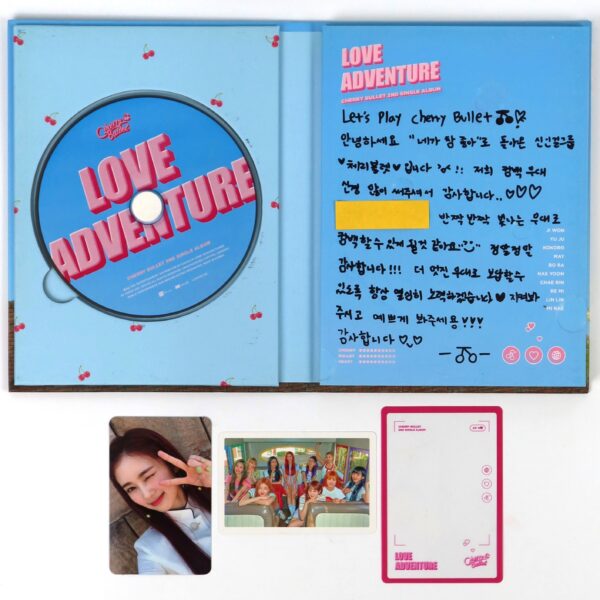 Cherry Bullet
LOVE
ADVENTURE
CHERRY BULLET 2ND SINGLE ALBUM
LOVE
ADVENTURE
CHERRY BULLET 2ND SINGLE ALBUM
Let's Play cherry Bullet
안녕하세요 "네가 참 좋아"로 돌아온 신인걸그룹
♥체리블렛♥ 입니다 !! 저희 컴백 무대
신경 많이 써주셔서 감사합니다.. ♡♡♡
반짝 반짝 빛나는 무대로
컴백할 수 있게 된것 같아요 정말정말
감사합니다!!! 더 멋진 무대로 보답할수
있도록 항상 열심히 노력하겠습니다 ♥ 지켜봐
주시고 예쁘게 봐주세요 ♥♥♥
감사합니다
JI WON
YU JU
KOKORO
MAY
BO RA
HAE YOON
CHAE RIN
RE MI
LIN LIN
MI RAE
CHERRY
BULLET
HEART
CHERRY BULLET
2ND SINGLE ALBUM
LOVE
ADVENTURE
Cherry Bullet